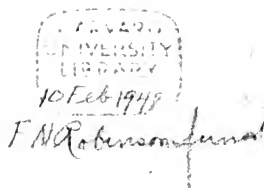 HARVARD
UNIVERSITY
LIBRARY
10 Feb 1948
F N Robinson fund